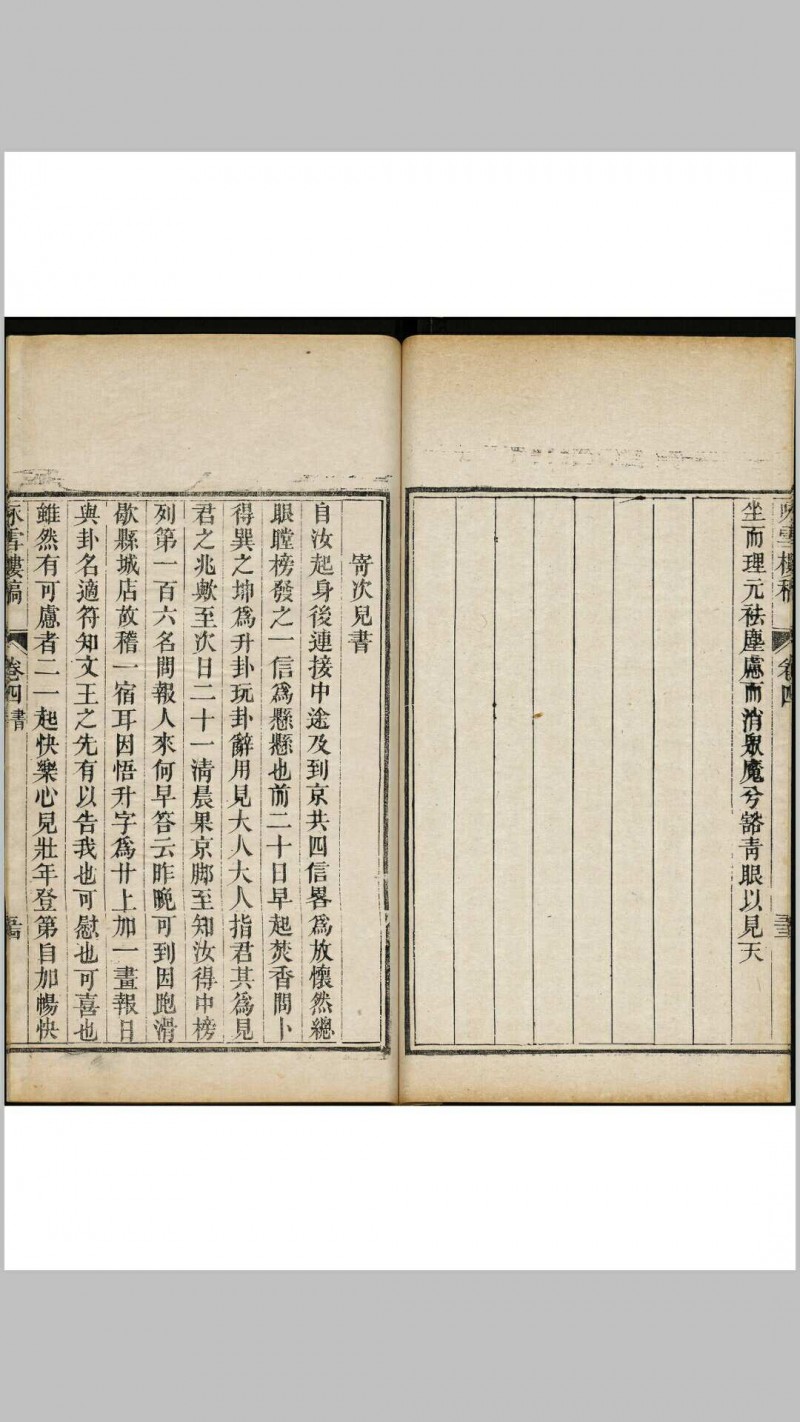 坐而理元祛塵慮而消眾魔兮豁青眼以見天
卷四
寄次兒書
自汝起身後連接中途及到京共四信畧爲放懷然總
眼瞠榜發之一信爲懸懸也前二十日早起焚香問卜
得巽之坤爲升卦玩卦辭用見大人大人指君其爲見
君之兆歟至次日二十一清晨果京脚至知汝得中榜
列第一百六名問報人來何早答云昨晚可到因跑滑
歇縣城店故稽一宿耳因悟升字爲廾上加一畫報日
與卦名適符知文王之先有以告我也可慰也可喜也
雖然有可慮者二一起快樂心見壯年登第自加暢快
雪樓稿
卷四書